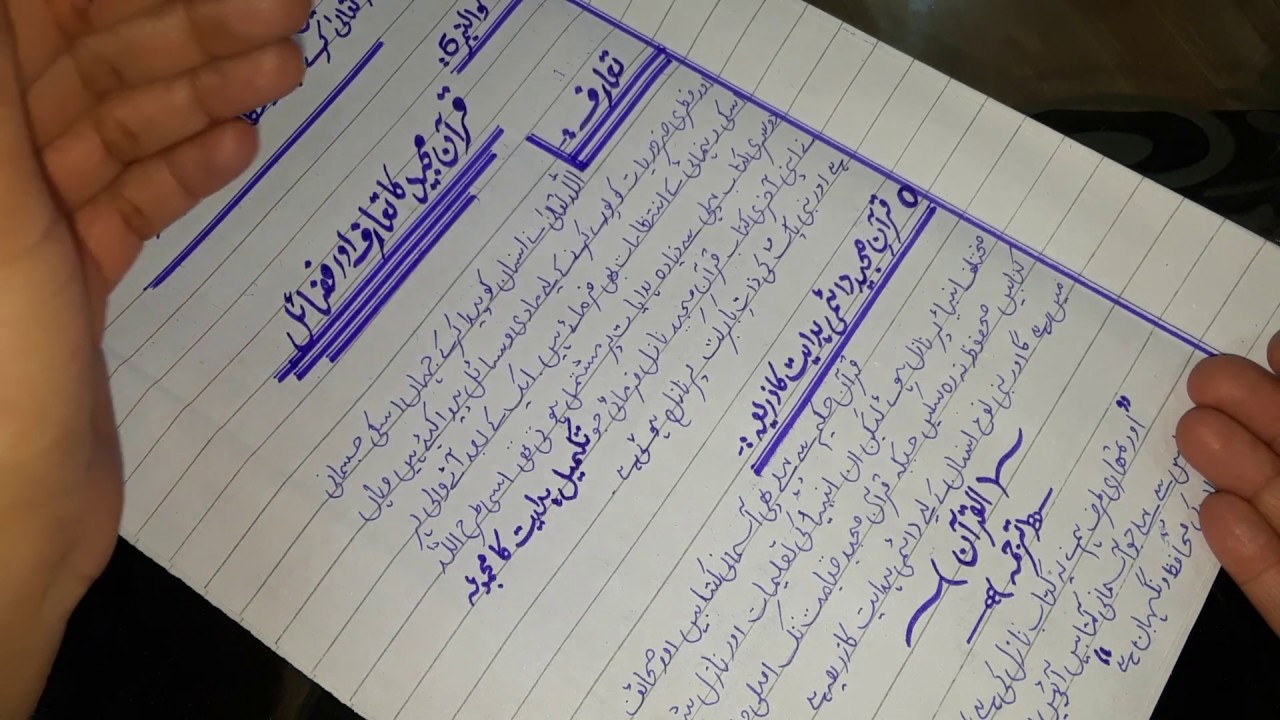 سوالنمبر 6:
قرآن مجید کا تعارف اور فضائل
تعارف :-
اللہ تعالیٰ نے انسان کو پیدا کر کے جہاں اسکی جسمانی
اور فطری ضروریات کو پورا کرنے کے لیے مادی وسائل پیدا کیئے ہیں وہاں
اسکی رہنمائی کے انتظامات بھی فرمائے ہیں ایک کے بعد آنے والی ہر
دوسری کتاب پہلی سے زیادہ ہدایات پر مشتمل ہوتی تھی اسی طرح اللہ
نے اپنی آخری کتاب قرآن مجید نازل فرمائی جو تکمیل ہدایت کا مجموعہ
ہے اور نبی پاک ﷺ کی ذات بابرکت پر نازل ہوئی ہے
قرآن مجید دائمی ہدایت کا ذریعہ :-
قرآن حکیم سے پہلے بھی آسمانی کتابیں اور صحائف
مختلف انبیاؑ پر نازل ہوئے لیکن ان انبیاؑ کی تعلیمات اور نازل
کتابیں محفوظ نہ رہ سکیں جبکہ قرآن مجید قیامت تک اصلی
میں رہے گا اور بنی نوع انسان کے لیے دائمی ہدایت کا ذریعہ ہے
( القرآن )
ترجمہ
"اور تمہاری طرف ہم نے یہ کتاب نازل کی ہے
سے پہلے جو آسمانی کتابیں آئیں
محافظ و نگہبان ہے"